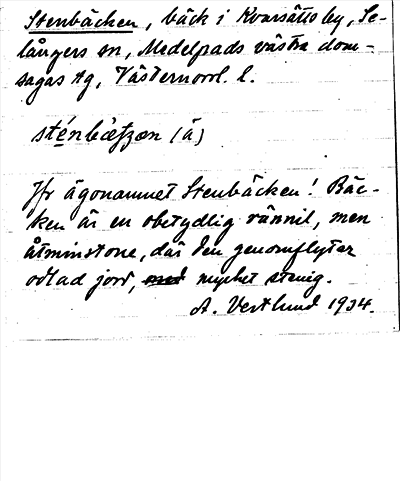 Stenbäcken, bäck i Kvarsätts by, Se-
långers sn, Medelpads västra dom-
sagas tg, Västernorrl. l.
sténbètʒən (ä)
Jfr ägonamnet Stenbäcken! Bäc-
ken är en obetydlig rännil, men
åtminstone, där den genomflyter
odlad jord, mycket stenig.
A. Vestlund 1934.